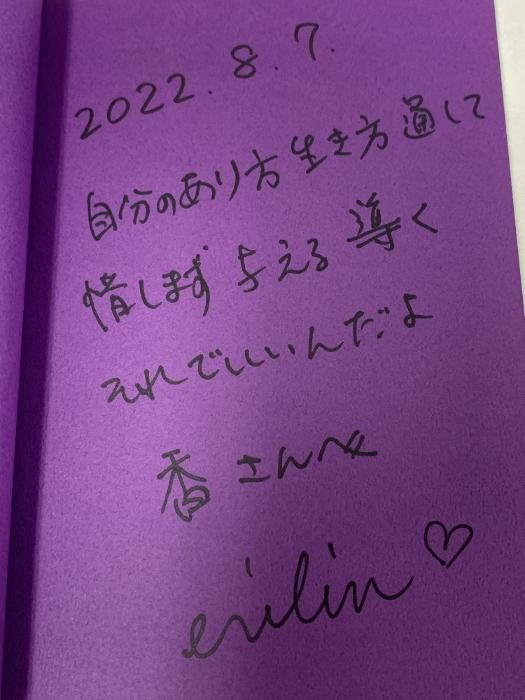 2022.8.7.
自分のあり方 生き方 通して
惜しまず 与える 導く
それでいいんだよ
香さんへ
eiilin ♡